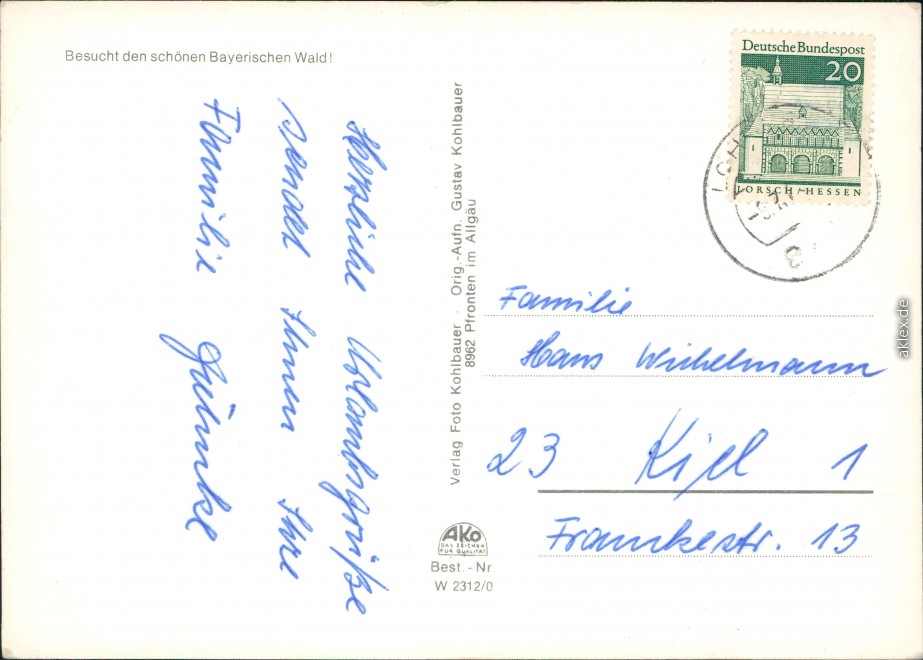 Besucht den schönen Bayerischen Wald!
Herzliche Urlaubsgrüße
sendet Ihnen Ihre
Familie
Verlag Foto Kohlbauer · Orig.-Aufn. Gustav Kohlbauer
8962 Pfronten im Allgäu
AKO
DAS ZEICHEN
FÜR QUALITÄT
Best.-Nr
W 2312/0
Deutsche Bundespost
20
LORSCH/HESSEN
Familie
Hans Wichelmann
23 Kiel 1
Franckestr. 13
aklex.de